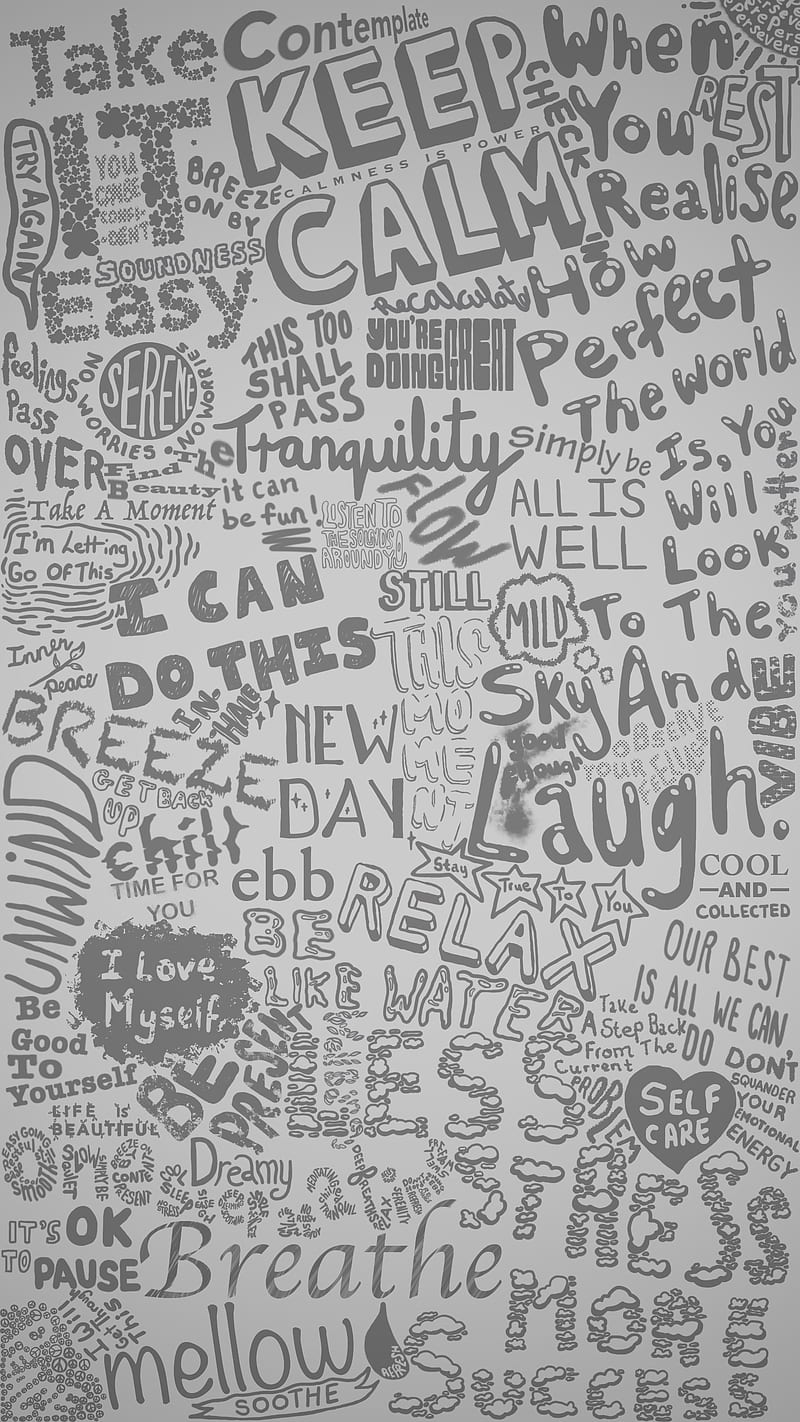 Take
IT
Easy
TRY AGAIN
Contemplate
KEEP
CALMNESS IS POWER
CALM
CHECK
in
When
You
Realise
How
Perfect
The world
Is, You
Will
Look
To The
Sky And
Laugh.
REST
BREEZE
ON BY
SOUNDNESS
Recalculate
THIS TOO
SHALL
PASS
YOU'RE
DOING GREAT
feelings
Pass
OVER
SERENE
NO WORRIES • NO WORRIES
The
Tranquility
Simply be
ALL IS
WELL
you matter
Find
Beauty
it can
be fun!
Take A Moment
LISTEN TO
THE SOUNDS
AROUND YOU
FLOW
I'm Letting
Go Of This
I CAN
DO THIS
STILL
THIS
MO
ME
NT
MILD
Inner
peace
IN-
HALE
BREEZE
NEW
DAY
good
enough
OBSERVE
YOUR
VIBE
UNWIND
GET BACK
UP
chill
TIME FOR
YOU
ebb
Stay
True
To
You
COOL
—AND—
COLLECTED
RELAX
BE
LIKE WATER
I Love
Myself
OUR BEST
IS ALL WE CAN
DO
Be
Good
To
Yourself
BE
PRESENT
Take
A Step Back
From The
Current
PROBLEM
DON'T
SQUANDER
YOUR
EMOTIONAL
ENERGY
SELF
CARE
LESS
STRESS
MORE
SUCCESS
LIFE is
BEAUTIFUL
Dreamy
IT'S OK
TO PAUSE
Breathe
I Will
Get Through
This
mellow
SOOTHE
REFRESH